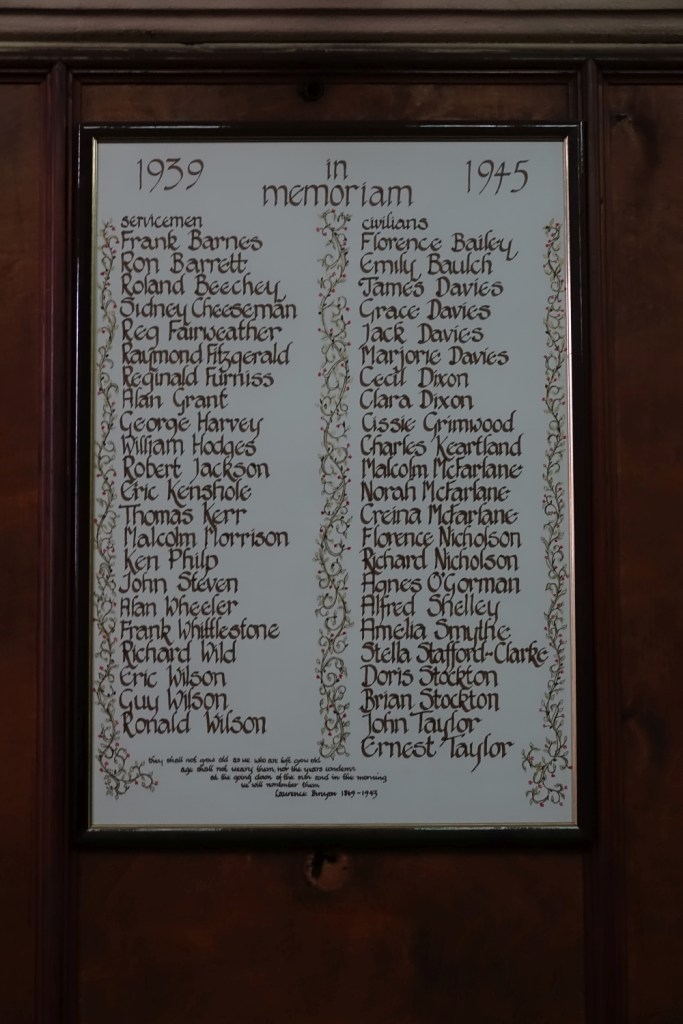 1939 in 1945
memoriam
servicemen
Frank Barnes
Ron Barrett
Roland Beechey
Sidney Cheeseman
Reg Fairweather
Raymond Fitzgerald
Reginald Furniss
Alan Grant
George Harvey
William Hodges
Robert Jackson
Eric Kenshole
Thomas Kerr
Malcolm Morrison
Ken Philp
John Steven
Alan Wheeler
Frank Whittlestone
Richard Wild
Eric Wilson
Guy Wilson
Ronald Wilson
civilians
Florence Bailey
Emily Baulch
James Davies
Grace Davies
Jack Davies
Marjorie Davies
Cecil Dixon
Clara Dixon
Cissie Grimwood
Charles Keartland
Malcolm McFarlane
Norah McFarlane
Creina McFarlane
Florence Nicholson
Richard Nicholson
Agnes O'Gorman
Alfred Shelley
Amelia Smythe
Stella Stafford-Clarke
Doris Stockton
Brian Stockton
John Taylor
Ernest Taylor
they shall not grow old as we who are left grow old
age shall not weary them, nor the years condemn
at the going down of the sun and in the morning
we will remember them
Laurence Binyon 1869-1943